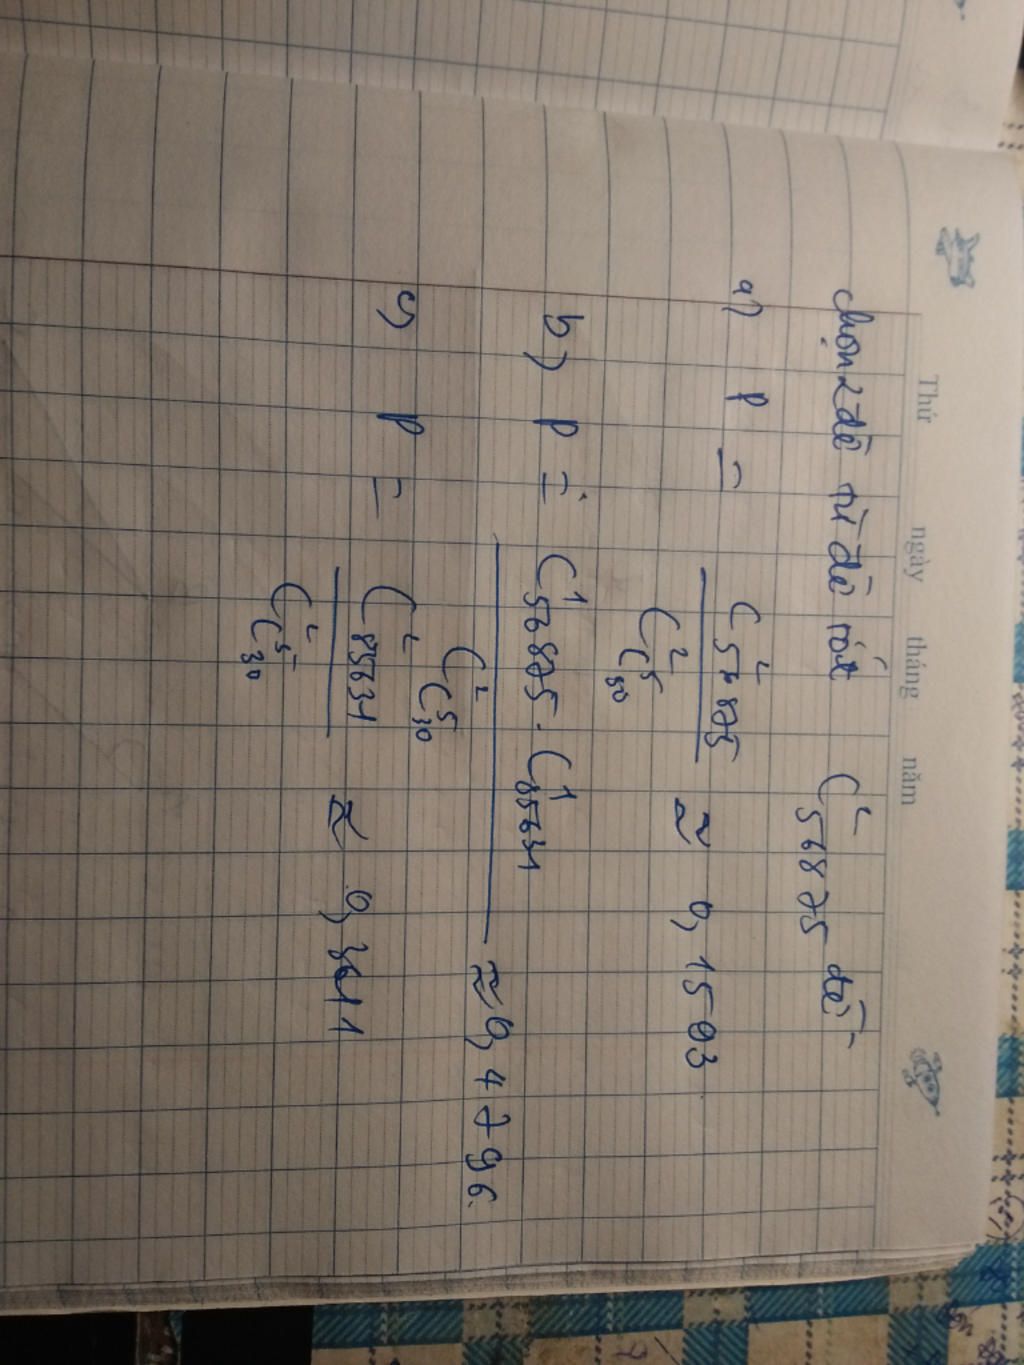 Thứ ngày tháng năm
chọn 2 đề từ đề tốt C²₅₆₈₇₅ đề
a) P = C²₅₆₈₇₅ / C²_C⁵₃₀ ≈ 0,1503
b) P = C¹₅₆₈₇₅ . C¹₈₅₆₃₁ / C²_C⁵₃₀ ≈ 0,4796
c) P = C²₈₅₆₃₁ / C²_C⁵₃₀ ≈ 0,3611